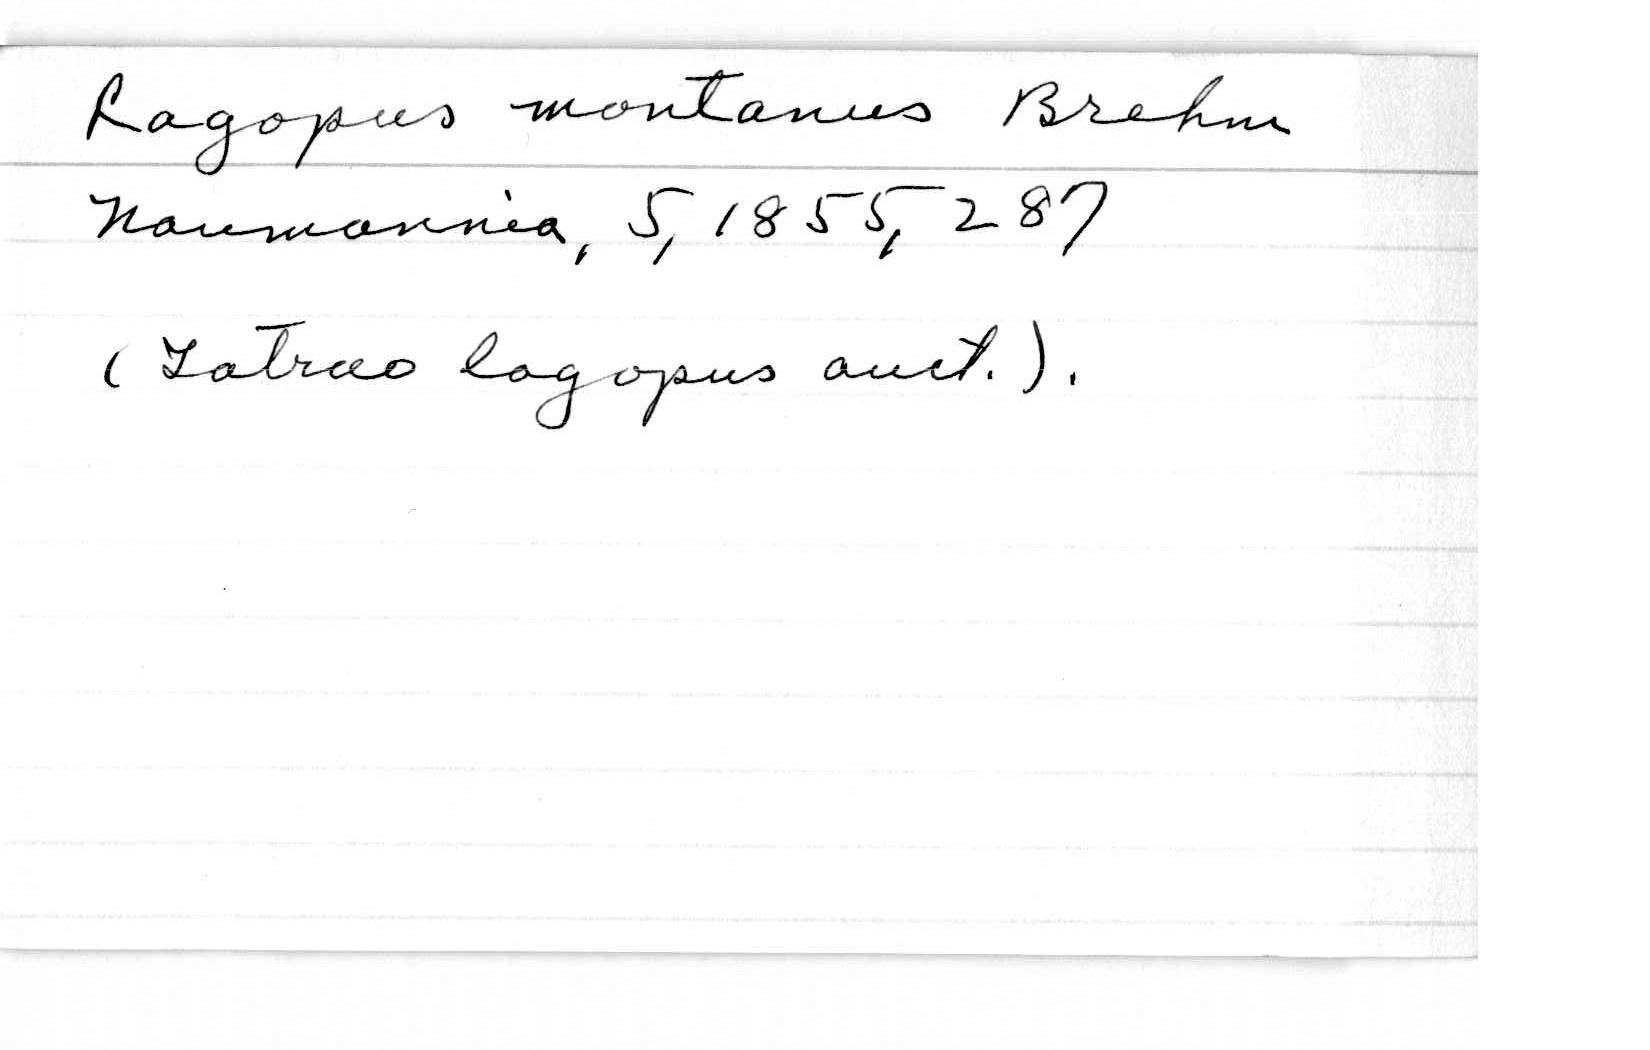 Lagopus montanus Brehm
Naumannia, 5, 1855, 287
(Tetrao lagopus auct.).